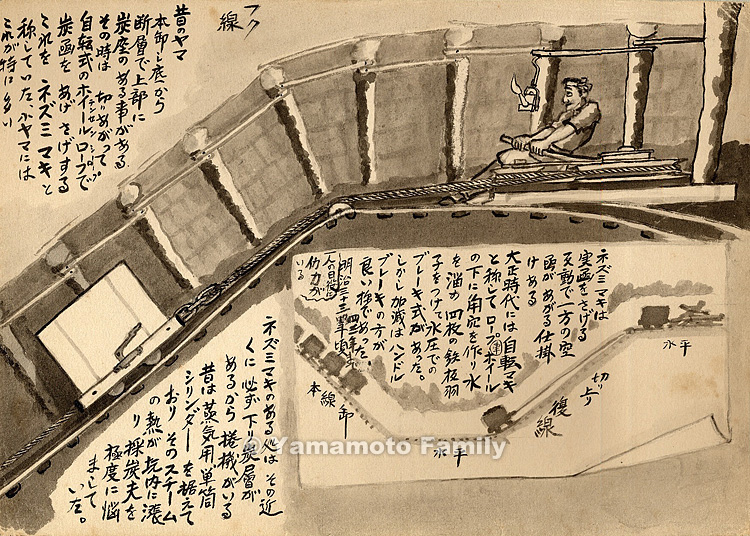 フク
線
昔のヤマ
本卸し底から
断層で上部に
炭座のある事がある
その時は 切りあがって
自転式のホイールロープで
炭函をあげさげする
これを ネズミマキと
称していた、小ヤマには
これが特に多い
ネズミマキは
実函をさげる
反動で一方の空
函があがる仕掛
けある
大正時代には自転マキ
と称してロープホイール
の下に角穴を作り水
を溜め四枚の鉄板羽
子をつけて水圧での
ブレーキ式があった。
しかし加減はハンドル
ブレーキの方が
良い捨であった、
水平
切り上り
複線
水平
本線卸
ネズミマキのある処は その近
くに必ず下り炭層が
あるから捲機がいる
昔は蒸気用単筒
シリンダーを据えて
おり そのスチーム
の熱が坑内に漲
り 採炭夫を
極度に悩
まして
いた。
© Yamamoto Family